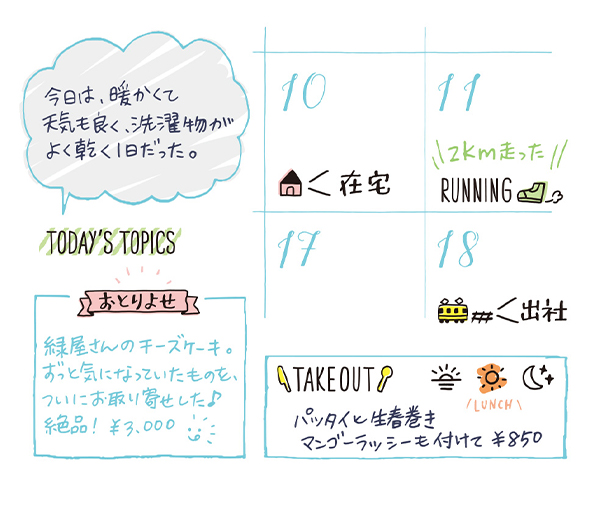 今日は、暖かくて
天気も良く、洗濯物が
よく乾く1日だった。
TODAY'S TOPICS
おとりよせ
緑屋さんのチーズケーキ。
ずっと気になっていたものを、
ついにお取り寄せした♪
絶品! ¥3,000
10
11
在宅
2km走った
RUNNING
17
18
出社
TAKEOUT
LUNCH
パッタイと生春巻き
マンゴーラッシーも付けて ¥850